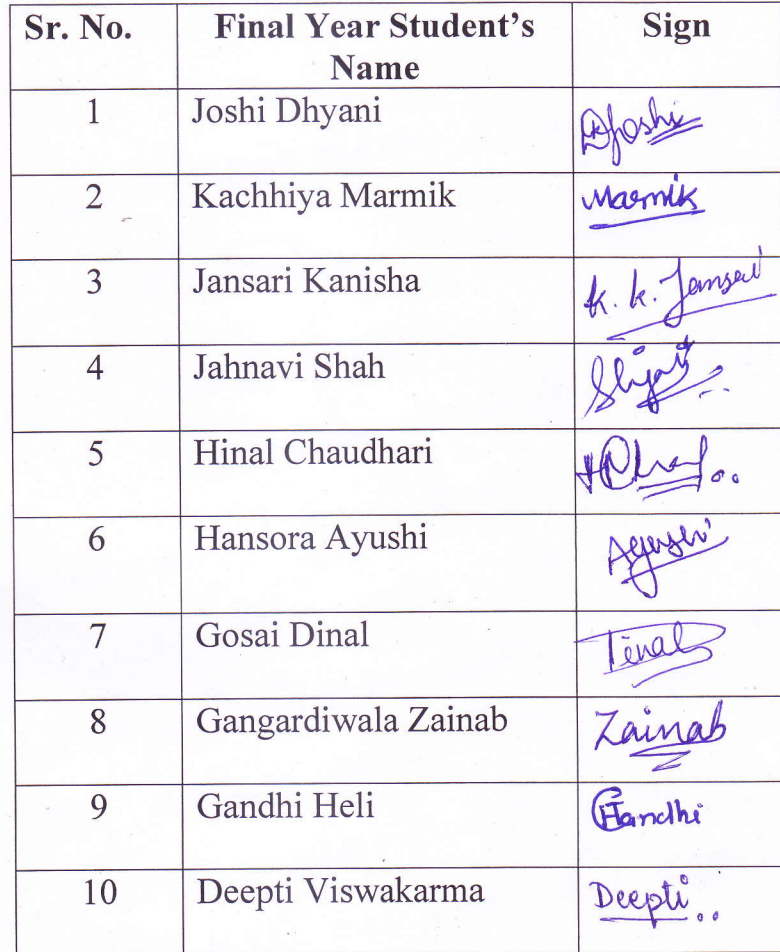 Sr. No. Final Year Student's Sign
Name
1 Joshi Dhyani DJoshi
2 Kachhiya Marmik Marmik
3 Jansari Kanisha K. K. Jansari
4 Jahnavi Shah
5 Hinal Chaudhari
6 Hansora Ayushi Ayushi
7 Gosai Dinal Tinal
8 Gangardiwala Zainab Zainab
9 Gandhi Heli Gandhi
10 Deepti Viswakarma Deepti